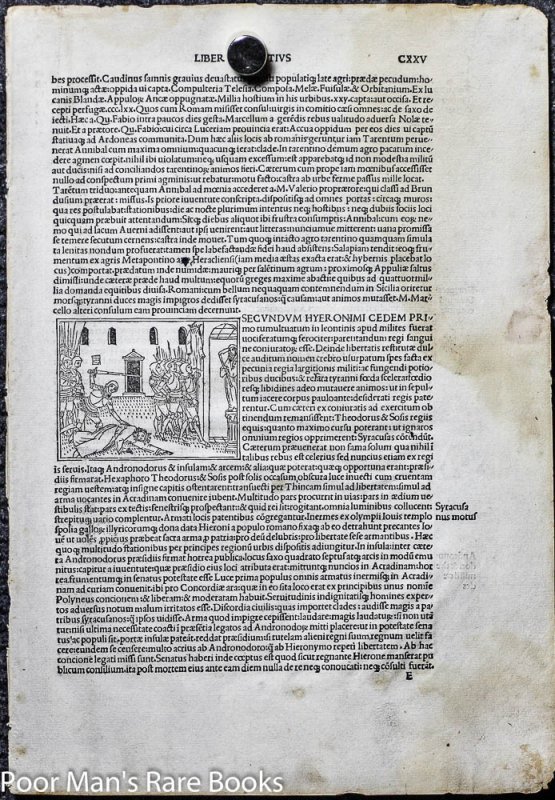 LIBER TIVS CXXV
bes processit. Caudinus samnis grauius deuastatus populatiq; late agri: prædæ pecudum: ho
minumq; actæ: oppida ui capta. Compulteria Telesia. Compsa. Melæ. Fulfulæ & Orbitanium. Ex lu
canis Blandæ. Appuloæ Ancæ oppugnatæ. Millia hostium in his urbibus .xxv. capta: aut occisa. Et re
cepti perfugæ .ccclxx. Quos cum Romam misisset consul: uirgis in comitio cæsi omnes: ac de saxo de
iecti. Hæc a .Qu. Fabio intra paucos dies gesta. Marcellum a gerēdis rebus ualitudo aduersa Nolæ te
nuit. Et a prætore .Qu. Fabio: cui circa Luceriam prouincia erat: Accua oppidum per eos dies ui captū
statiuaq; ad Ardoneas communita. Dum hæc aliis locis ab romanis gerūtur iam Tarentum perue
nerat Annibal cum maxima omnium: quacūq; ierat: clade. In tarentino demum agro pacatum ince
dere agmen cœpit. nihil ibi uiolatum: neq; usquam excessum: est apparebatq; id non modestia militū
aut ducis: nisi ad conciliandos tarentinoq; animos fieri. Cæterum cum prope iam mœnibus accessisset
nullo ad conspectum primi agminis: ut rebatur: motu facto: castra ab urbe ferme passus mille locat.
Tarētum triduo: antequam Annibal ad mœnia accederet a .M. Valerio proprætore: qui classi ad Brun
dusium præerat: missus. Is priore iuuentute conscripta. dispositisq; ad omnes portas: circaq; muros:
qua res postulabat: stationibus: die ac nocte plurimum intentus neq; hostibus: neq; dubiis sociis loci
quicquam præbuit attentandum: Sitq; diebus aliquot ibi frustra consumptis: Annibal: cum eoq; ne
mo qui ad lacum Auerni adissent: aut ipsi uenirent: aut litteras: nunciumue mitterent: uana promissa
se temere secutum cernens: castra inde mouet. Tum quoq; intacto agro tarentino quamquam simula
ta lenitas nondum profuerat: tamen spe labefactandæ fidei haud absistens: Salapiam tendit: eoq; fru
mentum ex agris Metapontino atq; Heracliensi (iam media æstas exacta erat: & hybernis placebat lo
cus) comportat. prædatum inde numidæ: mauriq; per salētinum agrum: proximosq; Appuliæ saltus
dimissi: unde cæteræ prædæ haud multum: equorū greges maxime abactæ: e quibus ad quattuor mil
lia domanda equitibus diuisa. Romani: cum bellum nequaquam contemnendum in Sicilia oriretur
morsq; tyranni duces magis impigros dedisset syracusanos: q; causam: aut animos mutasset. M. Mar
cello alteri consulum eam prouinciam decernunt.
SECVNDVM HYERONIMI CEDEM PRI
mo tumultuatum in leontinis apud milites fuerat
uociferatumq; ferociter: parentandum regi sangui
ne coniuratorꝝ esse. Deinde libertatis restitutæ dul
ce auditum nomen crebro usurpatum spes facta ex
pecunia regia largitionis militiæ: ac fungendi potio
ribus ducibus: & relata tyranni fœda scelera: fœdio
resq; libidines adeo mutauere animos: ut in sepul
tum iacere corpus paulo ante: desiderati regis pate
rentur. Cum cæteri ex coniuratis ad exercitum ob
tinendum remansissent: Theodotus & Sosis regiis
equis: quanto maximo cursu poterant: ut ignaros
omnium regios opprimerent: Syracusas cōtendūt.
Cæterum præuenerat non fama solum qua nihil ī
talibus rebus est celerius sed nuncius etiam ex regi
is seruis. Itaq; Andronodorus & insulam: & arcem: & alia: quæ poterat: quæq; opportuna erant: præsi
diis firmarat. Hexaphoto Theodotus: & Sosis post solis occasum: obscura luce inuecti cum cruentam
regiam uestem: atq; insigne capitis ostentarent: transuecti per Thicam simul ad libertatem: simul ad
arma uocantes in Acradinam conuenire iubent. Multitudo pars procurrit in uias: pars in ædium ue
stibulis stat: pars ex tectis: fenestrisq; prospectant: & quid rei sit rogitant. omnia luminibus collucent Syracusa
strepituq; uario complentur. Armati locis patentibus cōgregantur. Inermes ex olympii Iouis templo nus motus
spolia galloꝝ: illyricorumq; dona data Hieroni a populo romano fixa: q; ab eo detrahunt precantes Io
uē ut uolēs ,ppitius præbeat sacra arma, p patria: pro deū delubris: pro libertate sese armantibus. Hæc
quoq; multitudo stationibus per principes regionū urbis dispositis adiungitur. In insula: inter cæte
ra Andronodorus præsidiis firmat horrea publica: locus saxo quadrato septus: atq; arcis in modū emu
nitus: capitur a iuuentute: quæ præsidio eius loci attributa erat: mittuntq; nuncios in Acradinam: hor
rea: frumentumq; in senatus potestate esse Luce prima populus omnis armatus inermisq; in Acradi
nam ad curiam conuenit: ibi pro Concordiæ ara: quæ in eo sita loco erat ex principibus unus nomīe
Polyneus concionem: & liberam: & moderatam habuit. Seruitudinis indignitatisq; homines exper
tos aduersus notum malum irritatos esse. Discordia ciuilis: quas importet clades: audisse magis a pa
tribus syracusanos: q; ipsos uidisse. Arma quod impigre cepissent: laudare: magis laudatur: si non utā
tur: nisi ultima necessitate coacti: ī præsētia legatos ad Andronodoꝝ mitti placere: ut in potestate sena
tus: ac populi sit. portæ insulæ patent. reddat præsidium: si tutelam alieni regni suum, regnum uelit fa
cere: eundem se censere: multo acrius ab Andronodoro: q; ab Hieronymo repeti libertatem. Ab hac
concione legati missi sunt. Senatus haberi inde cœptus est: quod sicut regnante Hierone manserat pu
blicum consilium. ita post mortem eius ante eam diem nulla de re neq; conuocati: neq; cōsulti fuerāt.
E
Poor Man's Rare Books